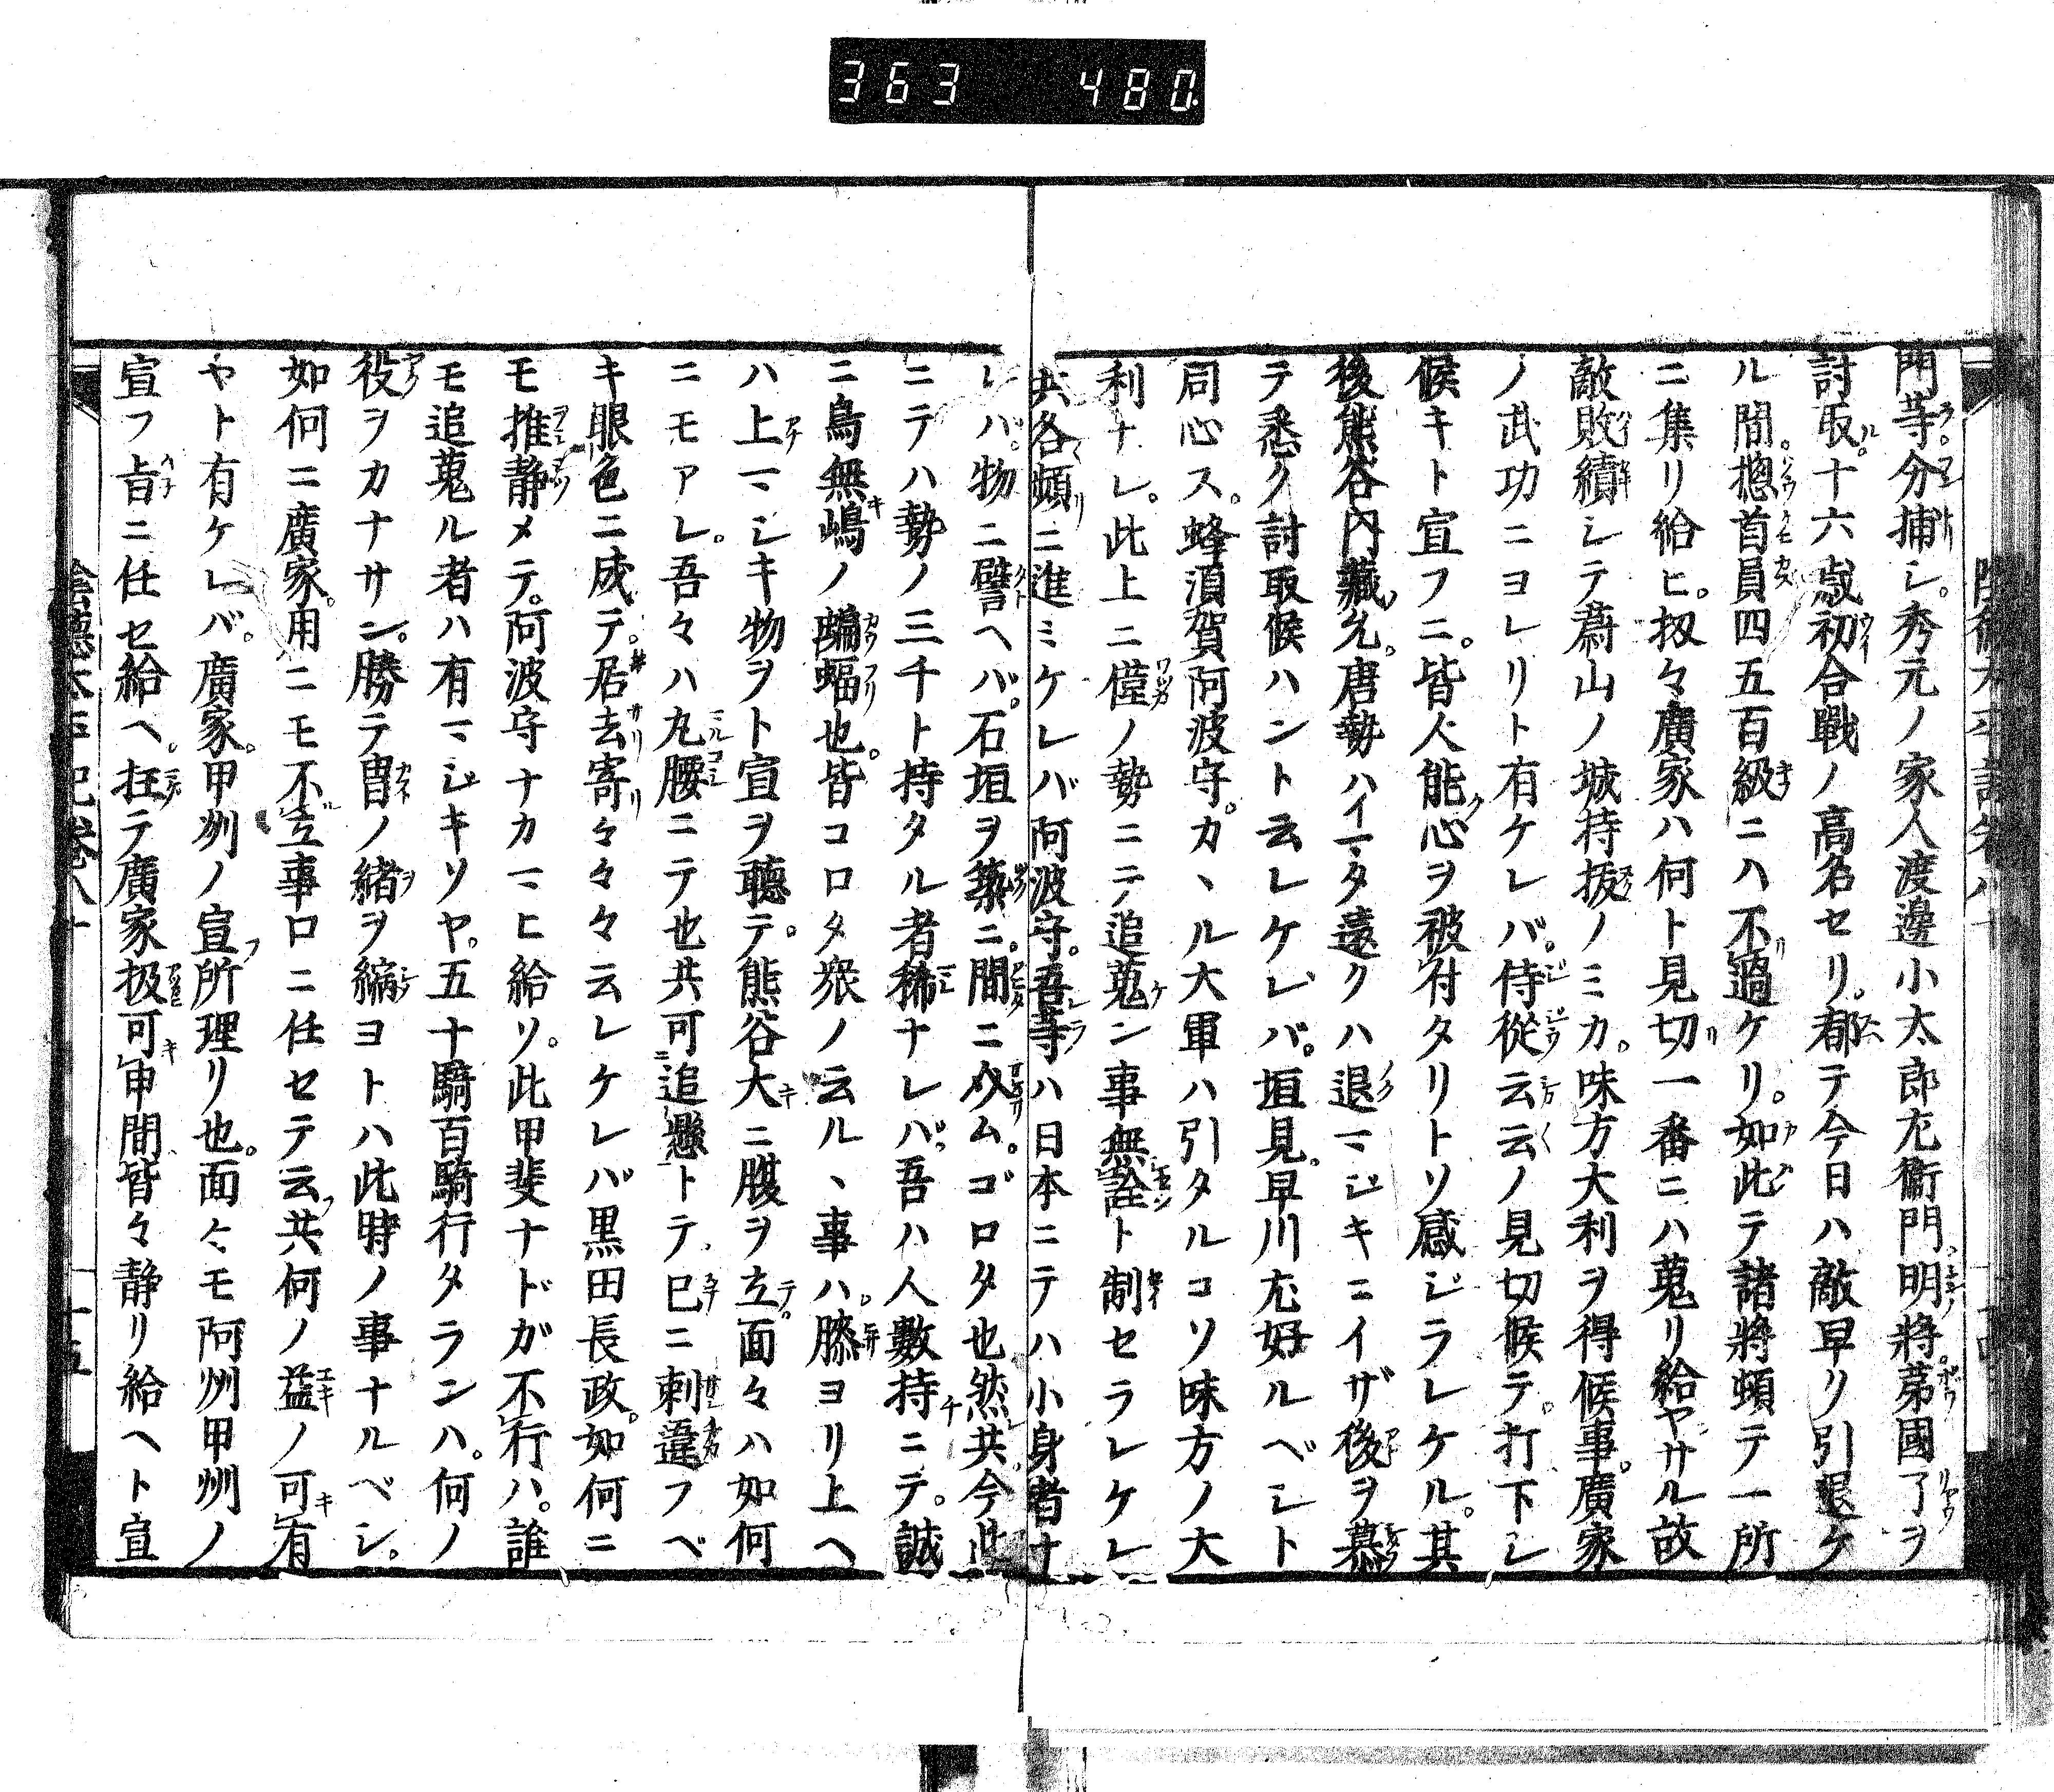 363 480
門等分捕シ。秀元ノ家人渡邊小太郎左衞門。明將蒡國了ヲ
討取。十六歳初合戰ノ高名セリ。都テ今日ハ敵早リ引退ケ
ル間。摠首員四五百級ニハ不過ケリ。如此テ諸將頓テ一所
ニ集リ給ヒ。扨々廣家ハ何ト見切一番ニハ蒐リ給ヤサル故
敵敗績シテ蔚山ノ城持拔ノミカ。味方大利ヲ得候事。廣家
ノ武功ニヨレリト有ケレバ。侍從云云ノ見切候テ。打下シ
候キト宣フニ。皆人能心ヲ被付タリトソ感ジラレケル。其
後熊谷内藏允。唐勢ハイマタ遠クハ退マジキニイザ後ヲ慕
テ悉ク討取候ハント云レケレバ。垣見。早川尤好ルベシト
同心ス。蜂須賀阿波守。カヽル大軍ハ引タルコソ味方ノ大
利ナレ。此上ニ僅ノ勢ニテ追蒐ン事無詮ト制セラレケレ
共各頻ニ進ミケレバ阿波守。吾等ハ日本ニテハ小身者ナ
レバ。物ニ譬ヘバ。石垣ヲ築ニ。間ニ介ム。ゴロタ也然共今此
ニテハ勢ノ三千ト持タル者稀ナレバ。吾ハ人數持ニテ。誠
ニ鳥無嶋ノ蝙蝠也。皆コロタ衆ノ云ルヽ事ハ。膝ヨリ上ヘ
ハ上マシキ物ヲト宣ヲ聽テ。熊谷大ニ腹ヲ立。面々ハ如何
ニモアレ。吾々ハ丸腰ニテ也共可追懸トテ巳ニ刺違フベ
キ眼色ニ成テ。居去寄々々々云レケレバ黒田長政。如何ニ
モ推静メテ。阿波守ナカマヒ給ソ。此甲斐ナドガ不行ハ。誰
モ追蒐ル者ハ有マジキソヤ。五十騎百騎行タランハ。何ノ
役ヲカナサン。勝テ冑ノ緒ヲ縮ヨトハ此時ノ事ナルベシ。
如何ニ廣家。用ニモ不立事ロニ任セテ云共何ノ益ノ可有
ヤト有ケレバ。廣家。甲州ノ宣所理リ也。面々モ阿州甲州ノ
宣フ旨ニ任セ給ヘ。抂テ廣家扱可申間皆々静リ給ヘト宣
陰德太平記卷八十
十五